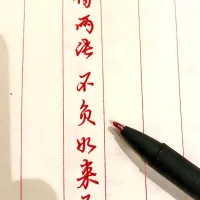 得两法 不负如来